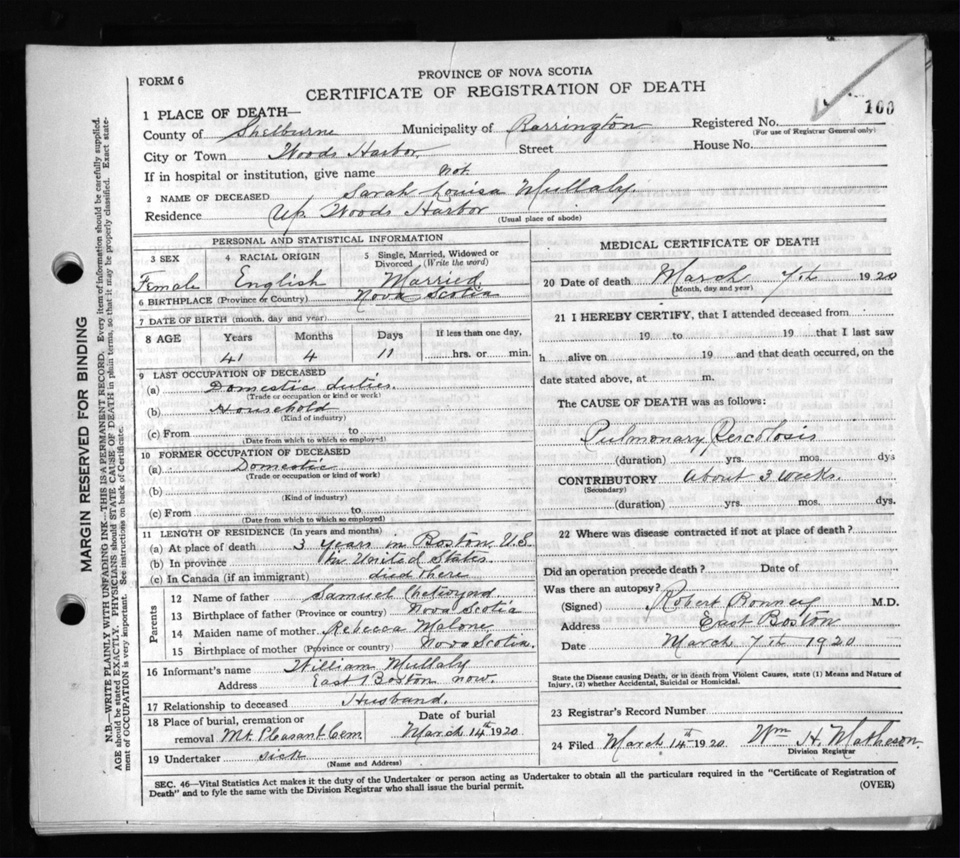 FORM 6
PROVINCE OF NOVA SCOTIA
CERTIFICATE OF REGISTRATION OF DEATH
160
1 PLACE OF DEATH—
County of Shelburne Municipality of Barrington Registered No.
(For use of Registrar General only)
City or Town Woods Harbor Street House No.
If in hospital or institution, give name Not
2 NAME OF DECEASED Sarah Louisa Mullaly
Residence Up. Woods Harbor (Usual place of abode)
PERSONAL AND STATISTICAL INFORMATION
3 SEX 4 RACIAL ORIGIN 5 Single, Married, Widowed or Divorced (Write the word)
Female English Married
6 BIRTHPLACE (Province or Country) Nova Scotia
7 DATE OF BIRTH (month, day and year)
8 AGE Years Months Days If less than one day,
41 4 11 hrs. or min.
9 LAST OCCUPATION OF DECEASED
(a) Domestic duties.
(Trade or occupation or kind or work)
(b) Household
(Kind of industry)
(c) From to
(Date from which to which so employed)
10 FORMER OCCUPATION OF DECEASED
(a) Domestic
(Trade or occupation or kind of work)
(b)
(Kind of industry)
(c) From to
(Date from which to which so employed)
11 LENGTH OF RESIDENCE (In years and months)
(a) At place of death 3 years in Boston U.S.
(b) In province In United States.
(c) In Canada (if an immigrant) died there
Parents
12 Name of father Samuel Chetwynd
13 Birthplace of father (Province or country) Nova Scotia
14 Maiden name of mother Rebecca Malone
15 Birthplace of mother (Province or country) Nova Scotia.
16 Informant's name William Mullaly
Address East Boston now.
17 Relationship to deceased Husband.
18 Place of burial, cremation or removal Mt. Pleasant Cem Date of burial March 14th 1920
19 Undertaker sick
(Name and Address)
MEDICAL CERTIFICATE OF DEATH
20 Date of death March 7th 1920
(Month, day and year)
21 I HEREBY CERTIFY, that I attended deceased from
19 to 19 that I last saw
h alive on 19 and that death occurred, on the
date stated above, at m.
The CAUSE OF DEATH was as follows:
Pulmonary
(duration) yrs. mos. dys
CONTRIBUTORY About 3 weeks.
(Secondary)
(duration) yrs. mos. dys.
22 Where was disease contracted if not at place of death?
Did an operation precede death? Date of
Was there an autopsy?
(Signed) Robert Bonney M.D.
Address East Boston
Date March 7th 1920
State the Disease causing Death, or in death from Violent Causes, state (1) Means and Nature of
Injury, (2) whether Accidental, Suicidal or Homicidal.
23 Registrar's Record Number
24 Filed March 14th 1920 Wm H. Matheson
Division Registrar
SEC. 46—Vital Statistics Act makes it the duty of the Undertaker or person acting as Undertaker to obtain all the particulars required in the "Certificate of Registration of
Death" and to fyle the same with the Division Registrar who shall issue the burial permit. (OVER)
MARGIN RESERVED FOR BINDING
N.B.—WRITE PLAINLY WITH UNFADING INK—THIS IS A PERMANENT RECORD. Every item of information should be carefully supplied.
AGE should be stated EXACTLY. PHYSICIANS should STATE CAUSE OF DEATH in plain terms, so that it may be properly classified. Exact state-
ment of OCCUPATION is very important. See instructions on back of Certificate.